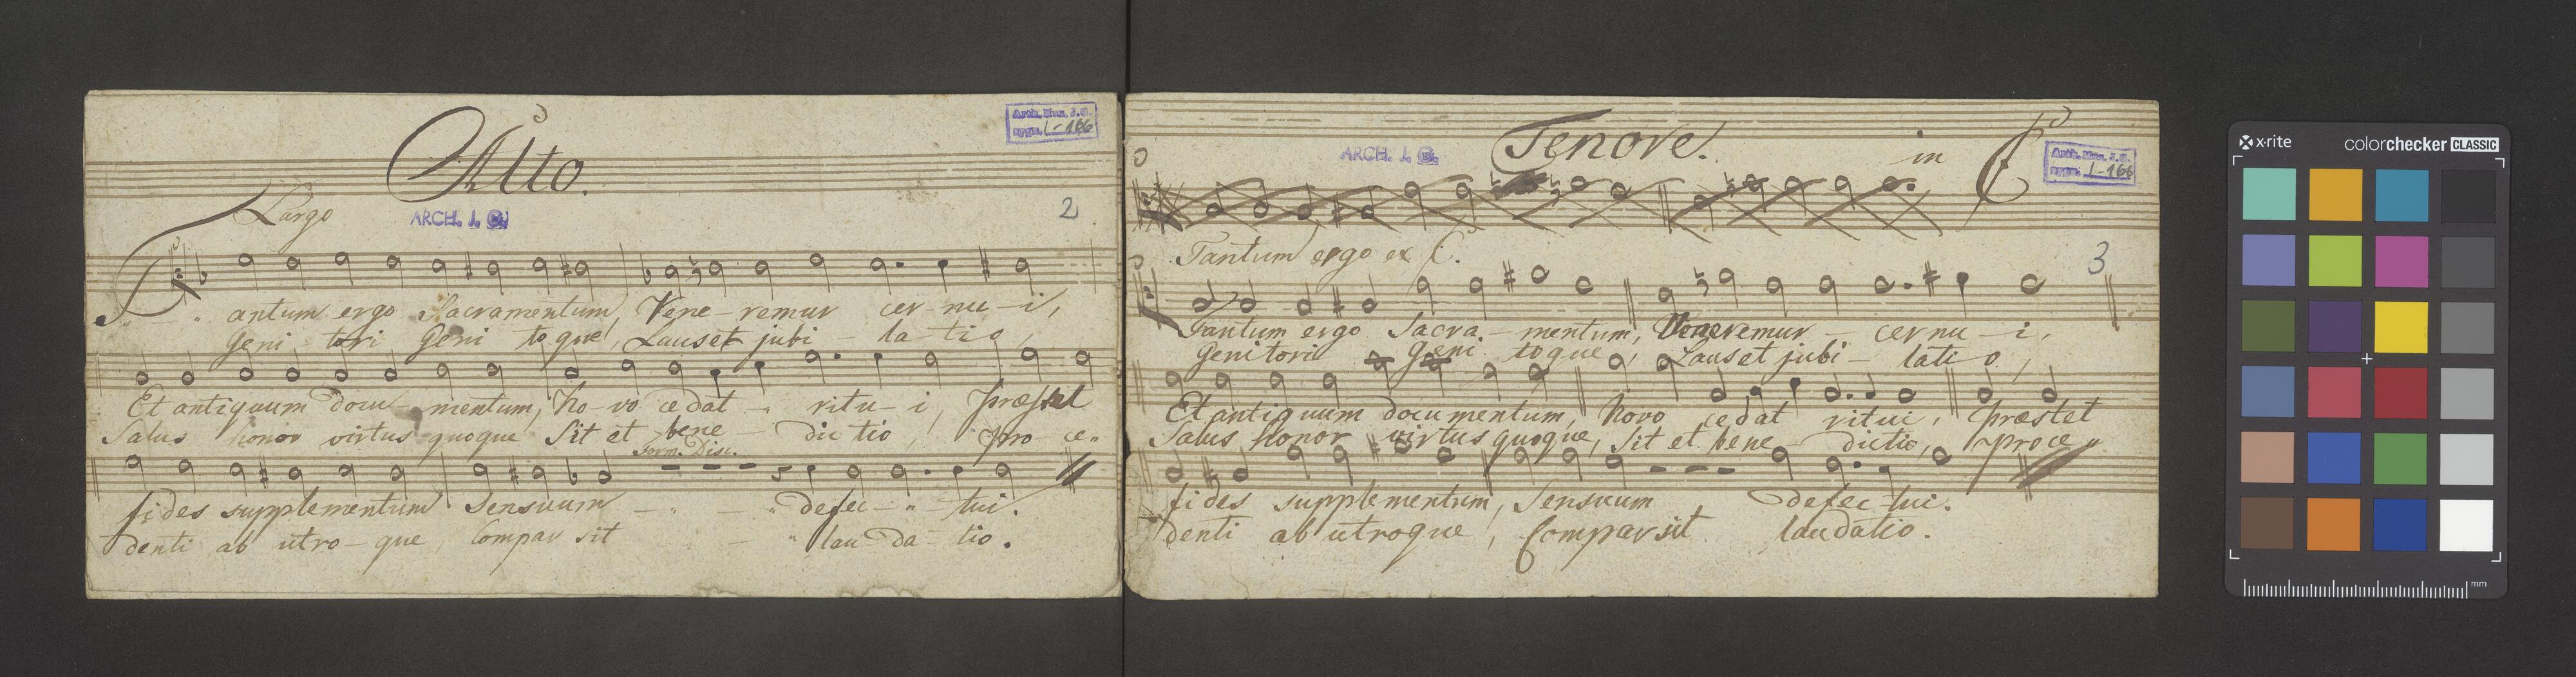 Alto.
Arch. Mus. J. G.
sygn. I-166
Largo
ARCH. J. G.
2
Tantum ergo Sacramentum, Vene-remur cer-nu-i,
Geni-tori Geni toque, Lauset jubi-la-tio,
Et antiquum docu-mentum, No-vo cedat ritu-i, præstet
Salus honor virtus quoque Sit et bene-dictio, pro-ce-
Disc.
fides supplementum Sensuum defec-tui.
denti ab utro-que, Compar sit lau-da-tio.
Tenore.
in C
ARCH. J. G.
Arch. Mus. J. G.
sygn. I-166
Tantum ergo ex C.
3
Tantum ergo Sacra-mentum, Veneremur cernu-i,
Genitori Geni toque, Lauset jubi-latio,
Et antiquum documentum, Novo cedat ritui, præstet
Salus honor virtus quoque, Sit et bene-dictio, proce
fides supplementum, Sensuum defec-tui.
denti ab utroque, Compar sit laudatio.
x-rite colorchecker CLASSIC
mm